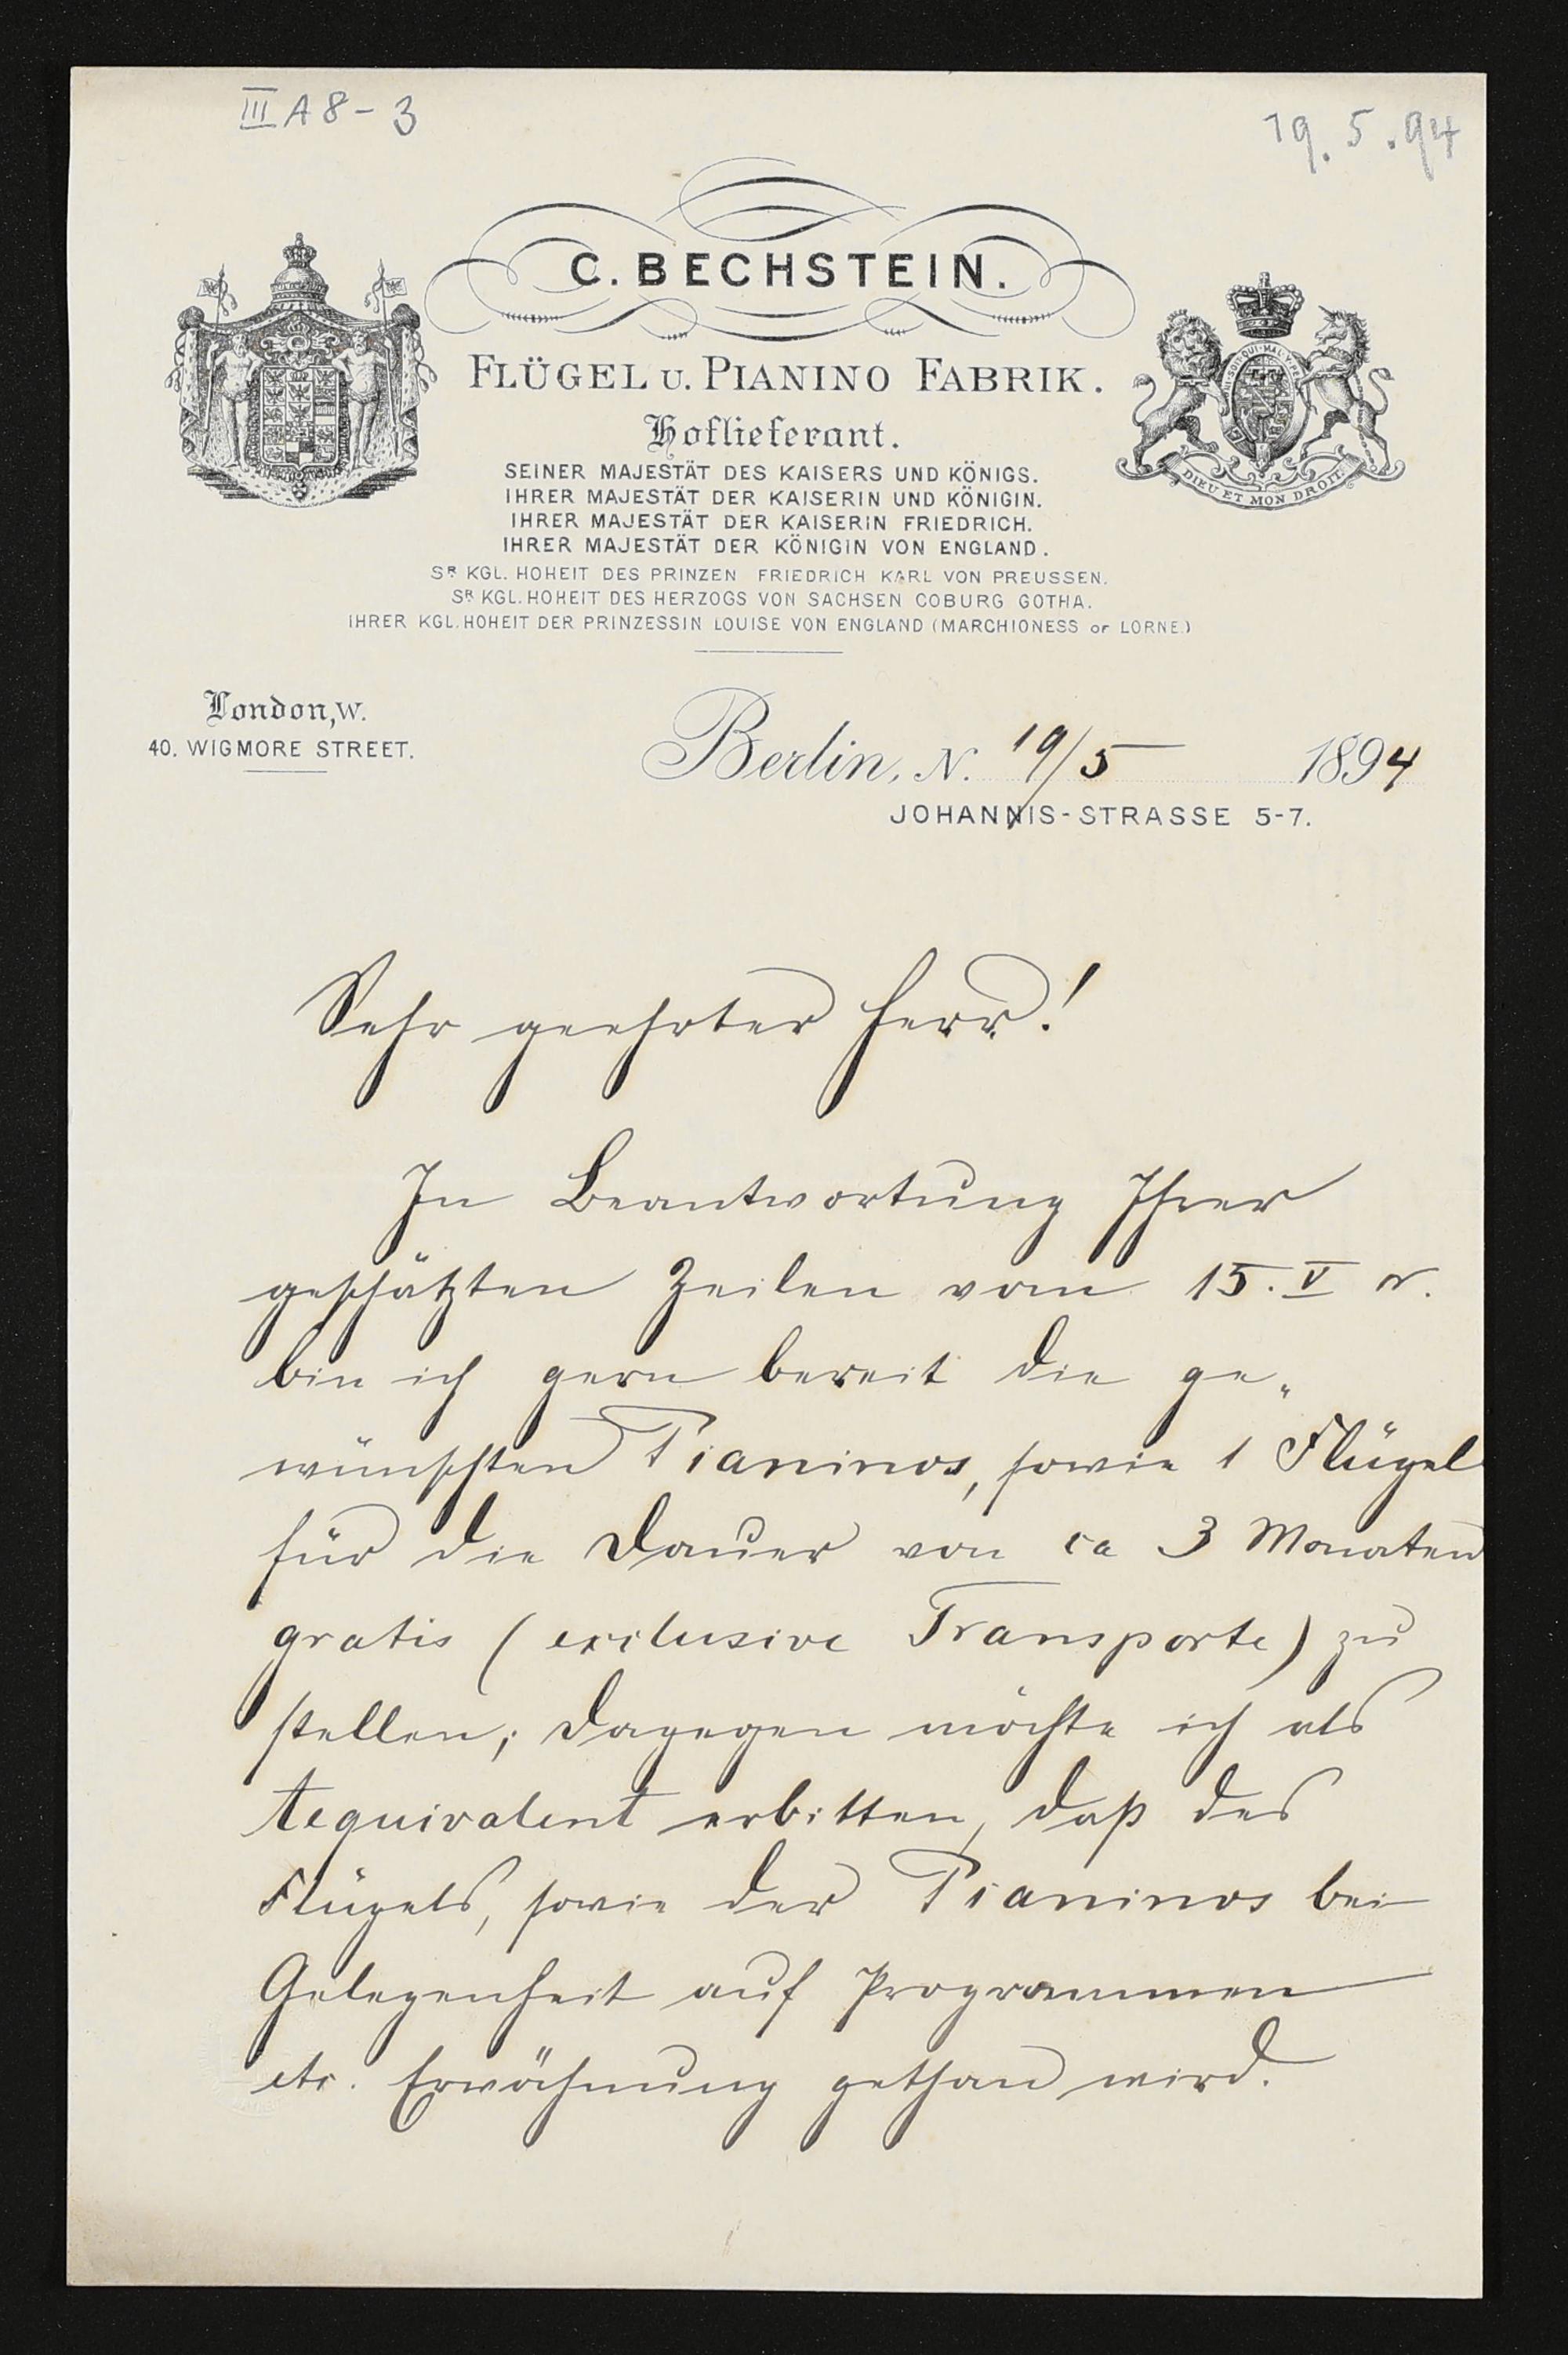 III A 8 - 3
19. 5. 94
C. BECHSTEIN.
FLÜGEL U. PIANINO FABRIK.
Hoflieferant.
SEINER MAJESTÄT DES KAISERS UND KÖNIGS.
IHRER MAJESTÄT DER KAISERIN UND KÖNIGIN.
IHRER MAJESTÄT DER KAISERIN FRIEDRICH.
IHRER MAJESTÄT DER KÖNIGIN VON ENGLAND.
SR KGL. HOHEIT DES PRINZEN FRIEDRICH KARL VON PREUSSEN.
SR KGL. HOHEIT DES HERZOGS VON SACHSEN COBURG GOTHA.
IHRER KGL. HOHEIT DER PRINZESSIN LOUISE VON ENGLAND (MARCHIONESS OF LORNE.)
DIEU ET MON DROIT
London, W.
40. WIGMORE STREET.
Berlin, N. 19/5 1894
JOHANNIS-STRASSE 5-7.
Sehr geehrter Herr!
In Beantwortung Ihrer
geschätzten Zeilen vom 15. V cr.
bin ich gern bereit die ge-
wünschten Pianinos, sowie 1 Flügel
für die Dauer von ca 3 Monaten
gratis (exclusive Transporte) zu
stellen; dagegen möchte ich als
Aequivalent erbitten, daß des
Flügels, sowie der Pianinos bei
Gelegenheit auf Programmen
etc. Erwähnung gethan wird.